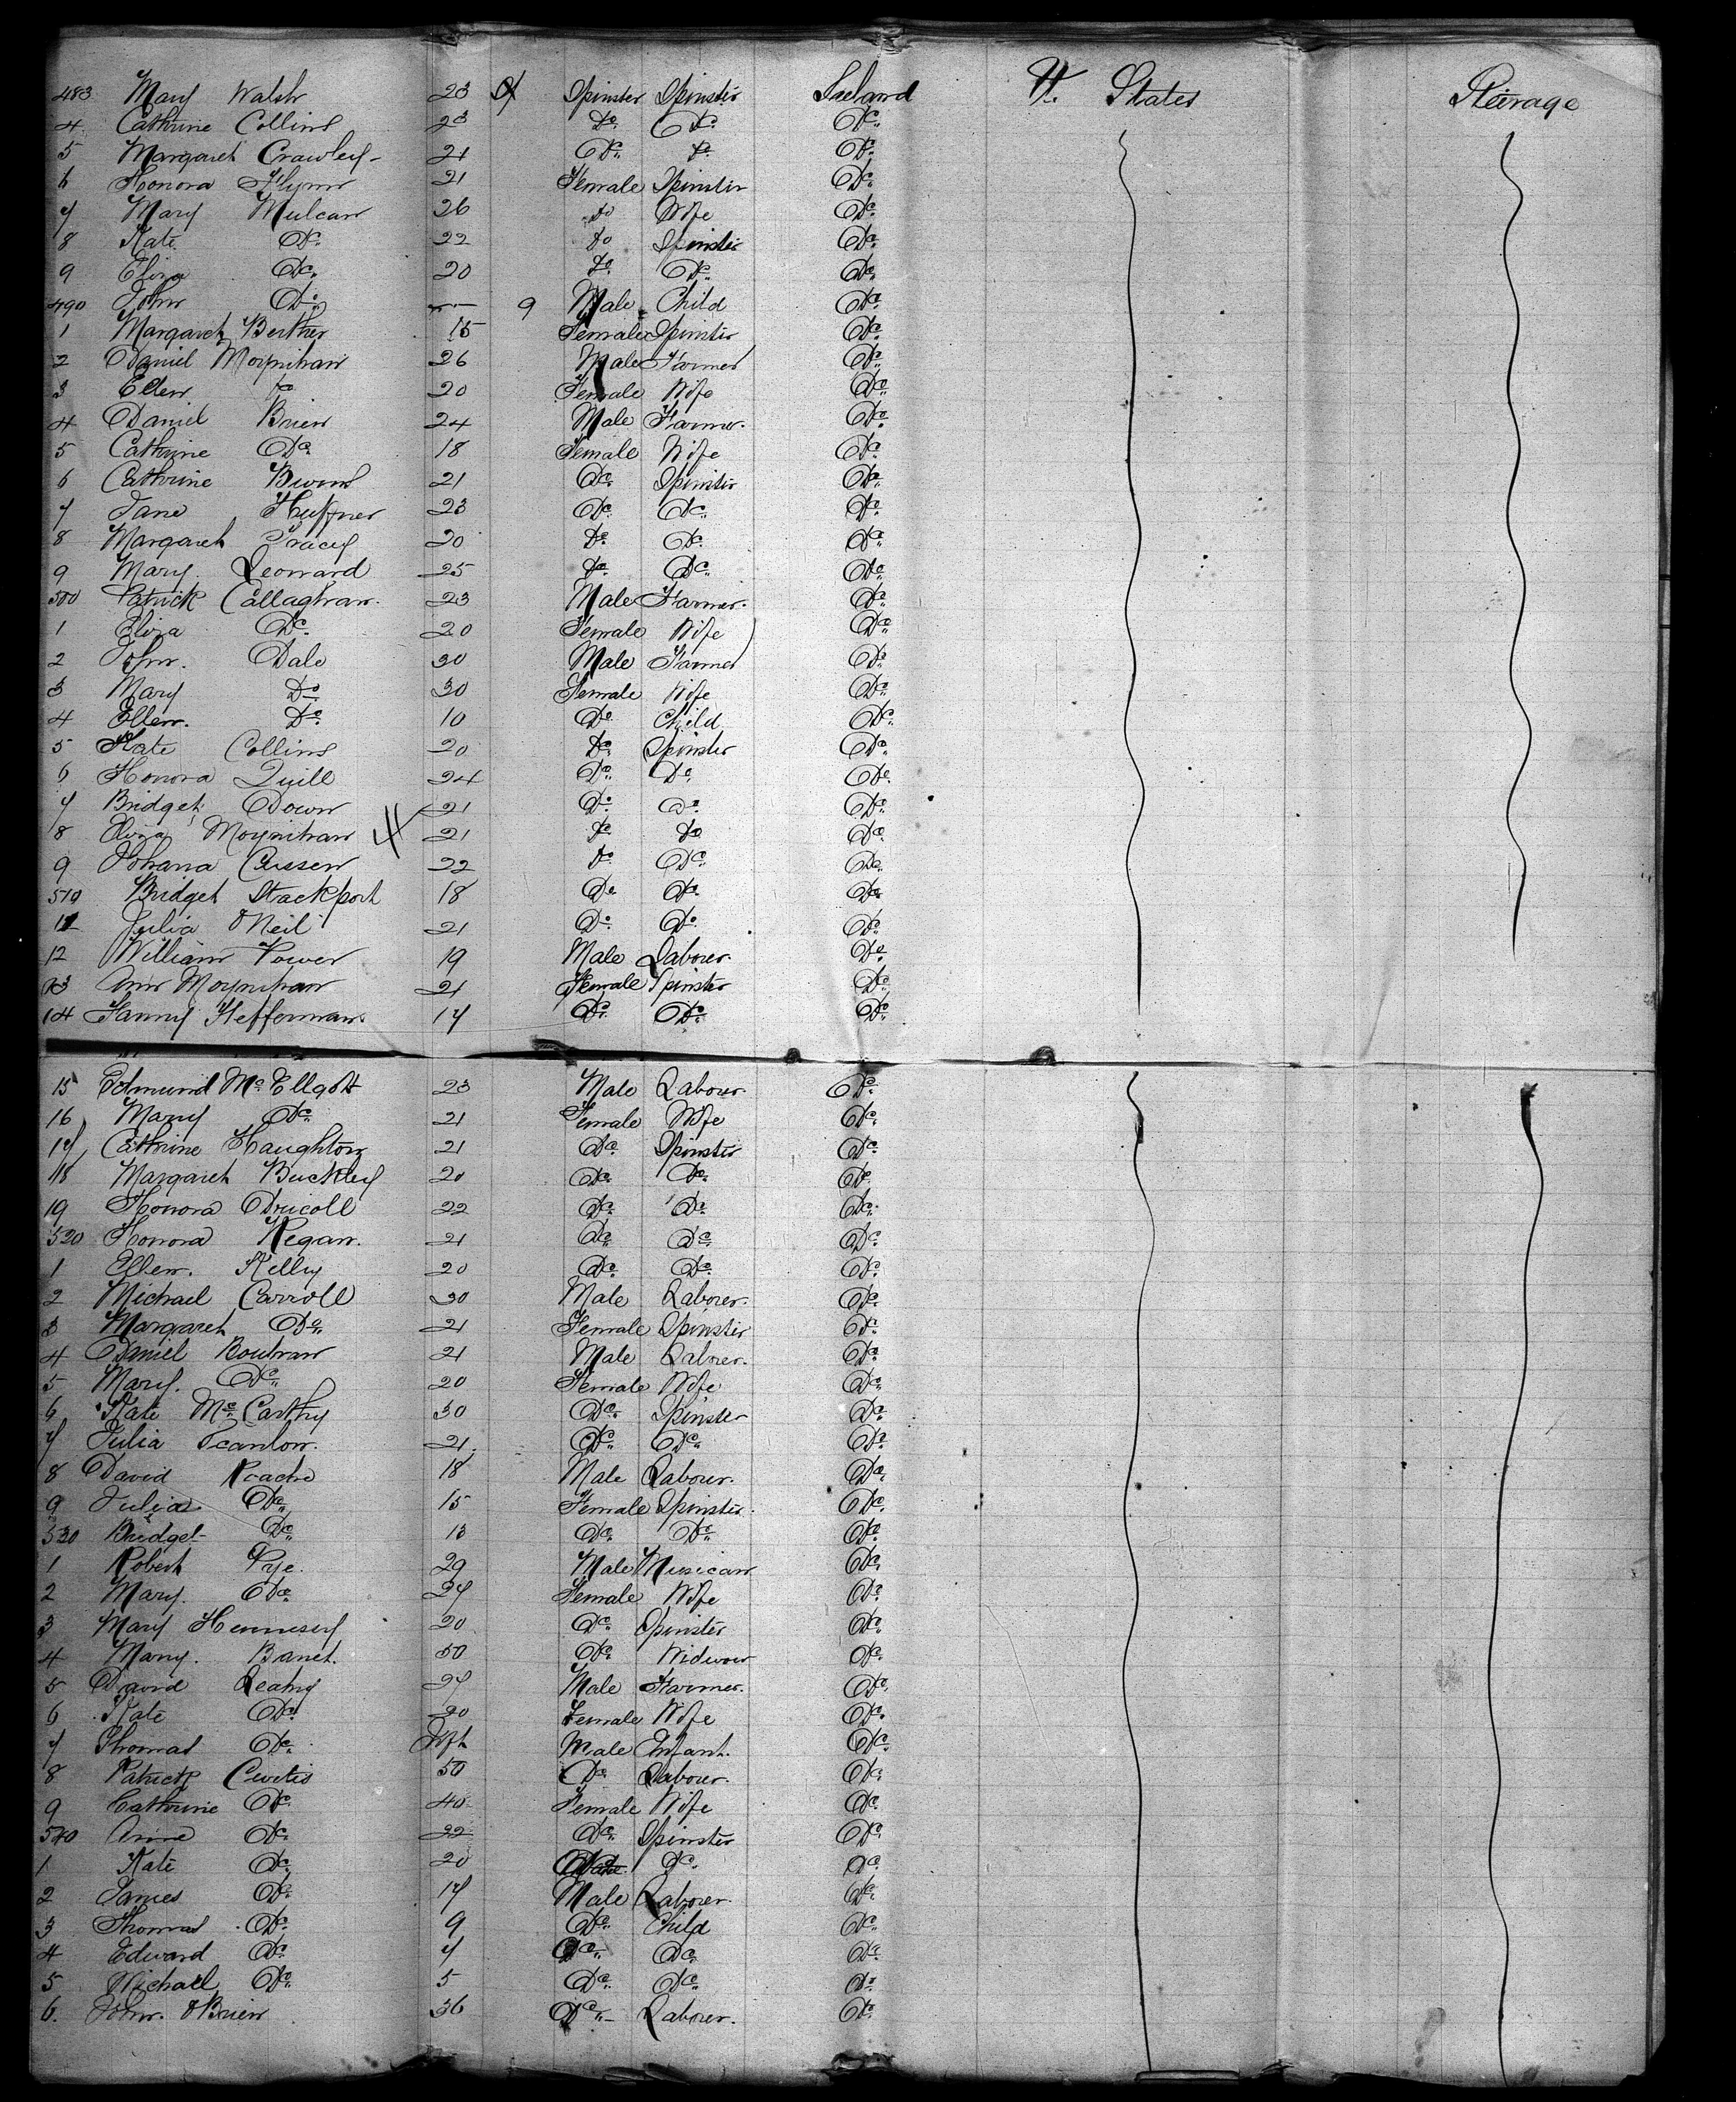 483 Mary Walsh 23 Spinster Spinster Ireland U. States Steerage
4 Cathrine Collins 23 Do. Do. Do.
5 Margaret Crawley 21 Do. Do. Do.
6 Honora Flynn 21 Female Spinster Do.
7 Mary Mulcan 26 Do Wife Do.
8 Kate Do. 22 Do Spinster Do.
9 Eliza Do. 20 Do. Do. Do.
490 John Do. 9 Male Child Do.
1 Margaret 15 Female Spinster Do.
2 Daniel Moynihan 26 Male Farmer Do.
3 Ellen Do 20 Female Wife Do.
4 Daniel Brien 24 Male Farmer. Do.
5 Cathrine Do. 18 Female Wife Do.
6 Cathrine 21 Do. Spinster Do.
7 Jane Huffner 23 Do. Do. Do.
8 Margaret Tracey 20 Do. Do. Do.
9 Mary Leonard 25 Do. Do. Do.
500 Patrick Callaghan. 23 Male Farmer. Do.
1 Eliza Do. 20 Female Wife Do.
2 John. Dale 30 Male Farmer Do.
3 Mary Do. 30 Female Wife Do.
4 Ellen. Do. 10 Do. Child Do.
5 Kate Collins 20 Do. Spinster Do.
6 Honora Quill 24 Do. Do Do.
7 Bridget Down 21 Do. Do. Do.
8 Eliza Moynihan 21 Do. Do Do.
9 Johana Cussen 22 Do. Do. Do.
510 Bridget Stackport 18 Do. Do. Do.
11 Julia O'Neil 21 Do. Do. Do.
12 William Power 19 Male Laborer. Do.
13 Ann Moynihan 21 Female Spinster Do.
14 Fanny Heffernan. 17 Do. Do. Do.
15 Edmund McEllgott 23 Male Labour. Do.
16 Mary Do. 21 Female Wife Do.
17 Cathrine Haughton 21 Do. Spinster Do.
18 Margaret Buckley 20 Do. Do. Do.
19 Honora Dricoll 22 Do. Do. Do.
520 Honora Regan. 21 Do. Do. Do.
1 Ellen. Kelly 20 Do. Do. Do.
2 Michael Carroll 30 Male Laborer. Do.
3 Margaret Do. 21 Female Spinster Do.
4 Daniel 21 Male Laborer. Do.
5 Mary. Do. 20 Female Wife Do.
6 Kate McCarthy 30 Do. Spinster Do.
7 Julia Scanlon. 21 Do. Do. Do.
8 David Roache 18 Male Labour. Do.
9 Julia Do. 15 Female Spinster. Do.
530 Bridget Do. 13 Do. Do. Do.
1 Robert Pye. 29 Male Musican Do.
2 Mary. Do. 27 Female Wife Do.
3 Mary Hennesey 20 Do. Spinster Do.
4 Mary. 50 Do. Widwow Do.
5 David Leahy 27 Male Farmer. Do.
6 Kate Do. 20 Female Wife Do.
7 Thomas Do. Inft Male Infant. Do.
8 Patrick Curtis 50 Do. Labour. Do.
9 Cathrine Do. 40 Female Wife Do.
540 Anne Do. 22 Do. Spinster Do.
1 Kate Do. 20 Do. Do.
2 James Do. 17 Male Laborer. Do.
3 Thomas Do. 9 Do. Child Do.
4 Edward Do. 7 Do. Do. Do.
5 Michael Do. 5 Do. Do. Do.
6. John. O'Brien 36 Do. Laborer. Do.